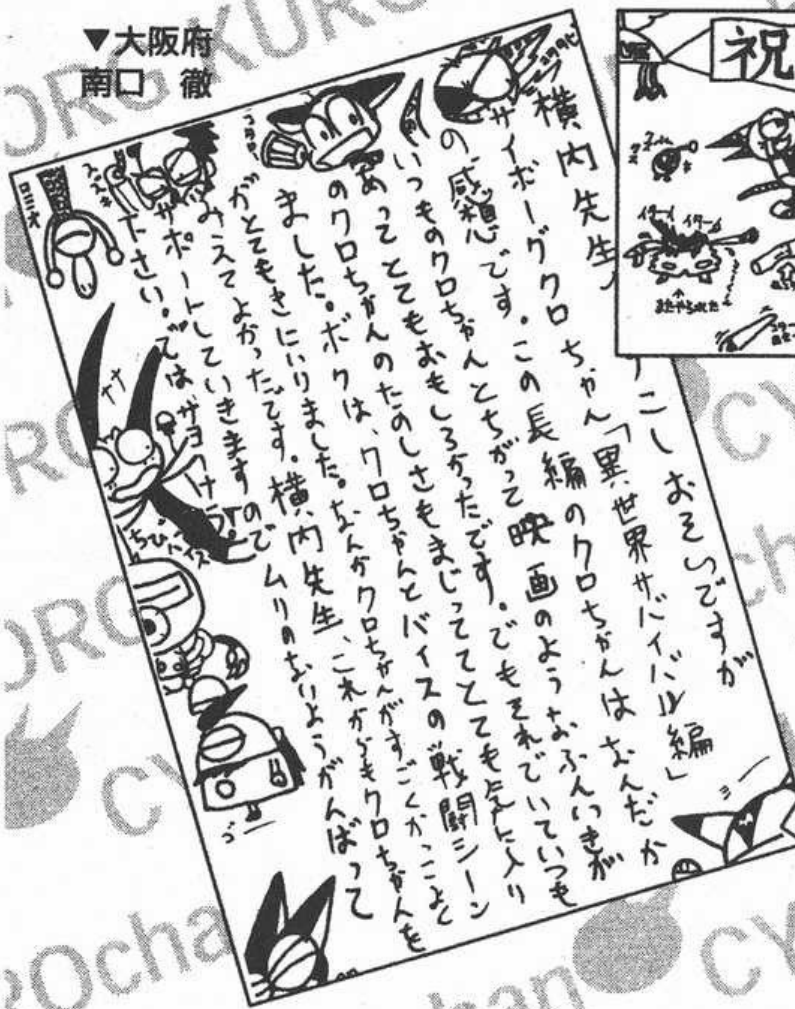 ▼大阪府
南口 徹
横内先生、こしおそいですが
サイボーグクロちゃん「異世界サバイバル編」
の感想です。この長編のクロちゃんはなんだか
いつものクロちゃんとちがって映画のようなふんいきが
あってとてもおもしろかったです。でもそれでいていつも
のクロちゃんのたのしさもまじっててとても気に入り
ました。ボクは、クロちゃんとバイスの戦闘シーン
がとてもきにいりました。なんかクロちゃんがすごくかっこよく
みえてよかったです。横内先生、これからもクロちゃんを
サポートしていきますのでムリのないようがんばって
下さい。では
ロミオ
ナナ
ちびバイス
祝
イターイ イターイ
またやられた